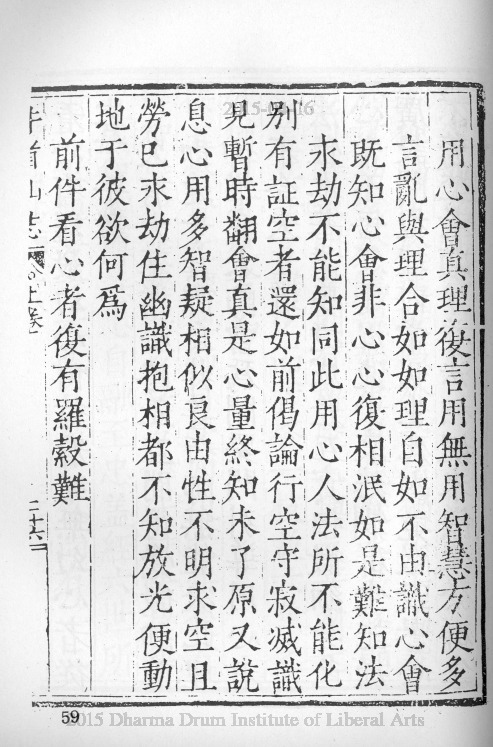 用心會真理復言用無用智慧方便多
言亂與理合如如理自如不由識心會
既知心會非心心復相泯如是難知法
永劫不能知同此用心人法所不能化
別有証空者還如前偈論行空守寂滅識
見暫時翻會真是心量終知未了原又說
息心用多智疑相似良由性不明求空且
勞巳永劫住幽識抱相都不知放光便動
地于彼欲何爲
前件看心者復有羅縠難
牛首山志
上卷
二十六
59
2015 Dharma Drum Institute of Liberal Arts